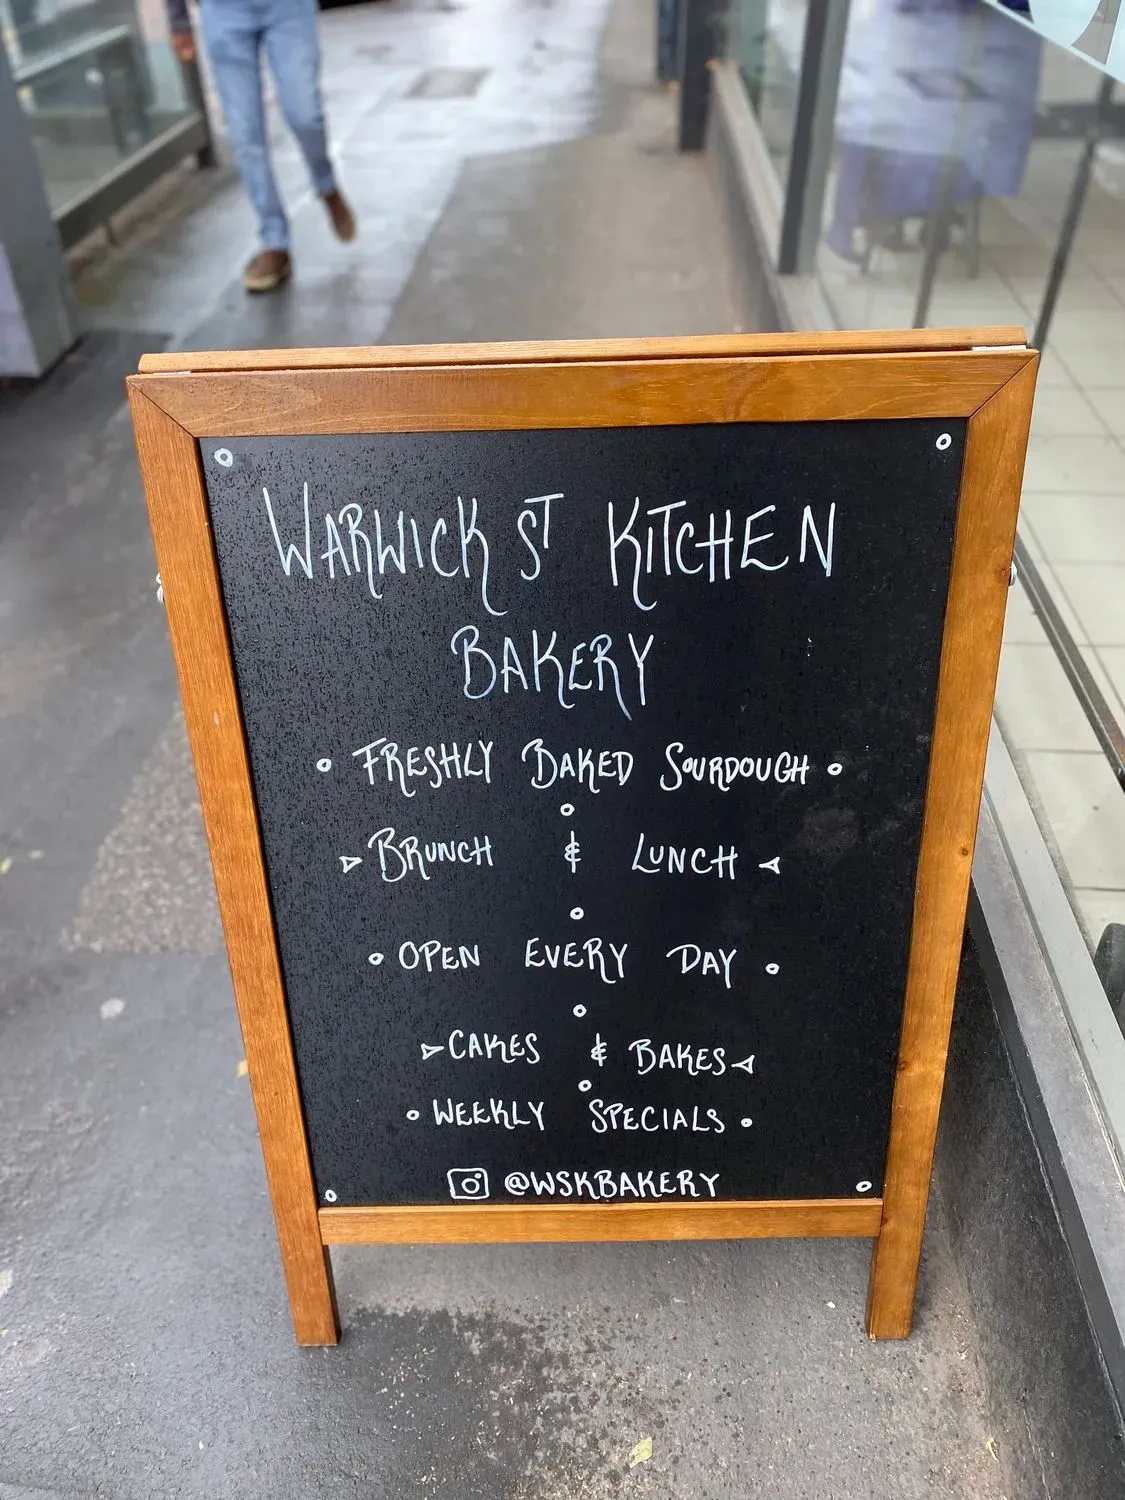 WARWICK ST KITCHEN
BAKERY
FRESHLY BAKED SOURDOUGH
BRUNCH & LUNCH
OPEN EVERY DAY
CAKES & BAKES
WEEKLY SPECIALS
@WSKBAKERY